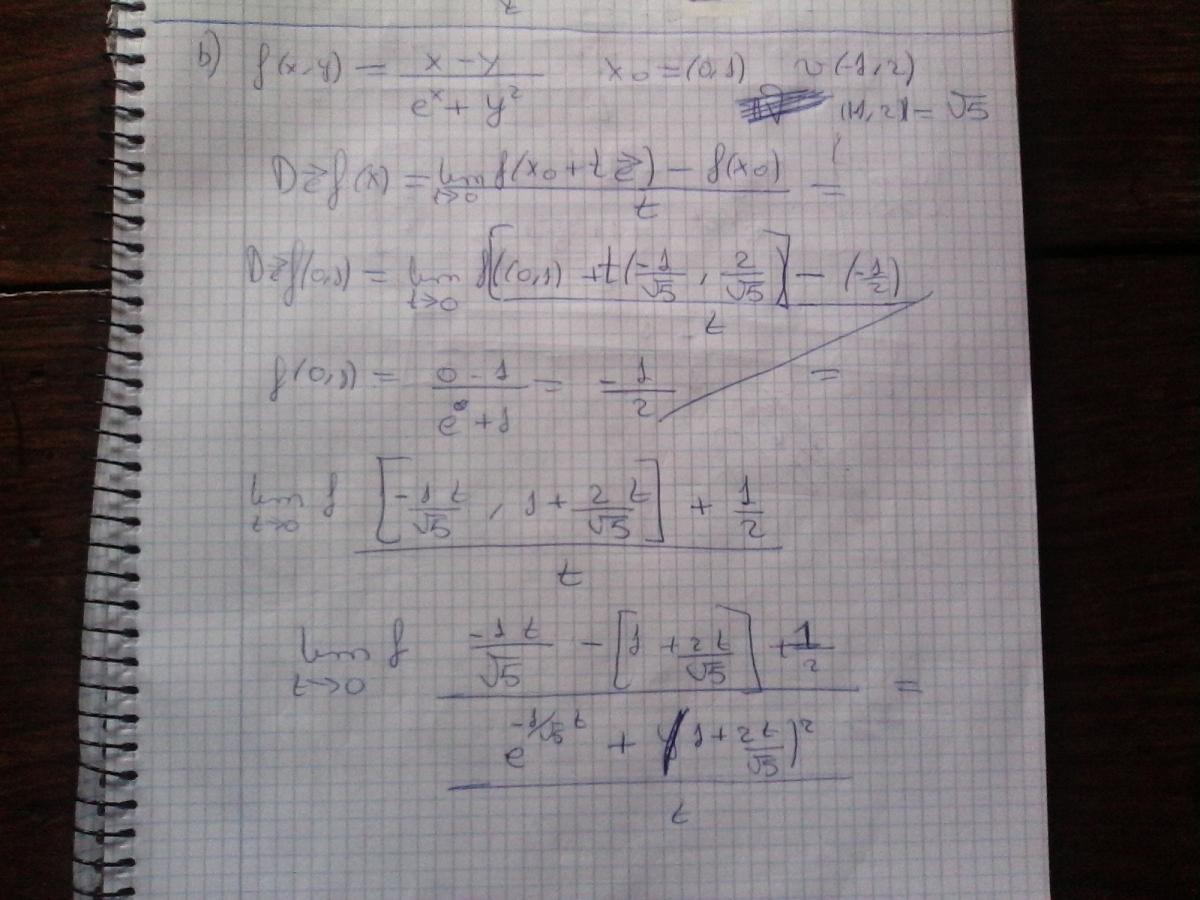 b) f(x,y) = \frac{x-y}{e^x + y^2} x_0 = (0,1) v(-1,2)
|(-1,2)| = √5
D\vec{e}f(x) = \lim_{t→0} \frac{f(x_0 + t\vec{e}) - f(x_0)}{t} =
D\vec{e}f(0,1) = \lim_{t→0} \frac{f[(0,1) + t(\frac{-1}{√5}, \frac{2}{√5}] - (-\frac{1}{2})}{t}
f(0,1) = \frac{0-1}{e^0+1} = -\frac{1}{2} =
\lim_{t→0} \frac{f[-\frac{1t}{√5}, 1 + \frac{2t}{√5}] + \frac{1}{2}}{t}
\lim_{t→0} f \frac{\frac{\frac{-1t}{√5} - [1 + \frac{2t}{√5}] + \frac{1}{2}}{e^{-1/√5 t} + (1 + \frac{2t}{√5})^2}}{t} =